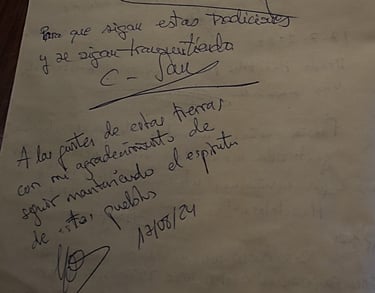 Para que sigan estas tradiciones
y se sigan transmitiendo
A las gentes de estas tierras
con mi agradecimiento de
seguir manteniendo el espíritu
de estos pueblos
17/08/24